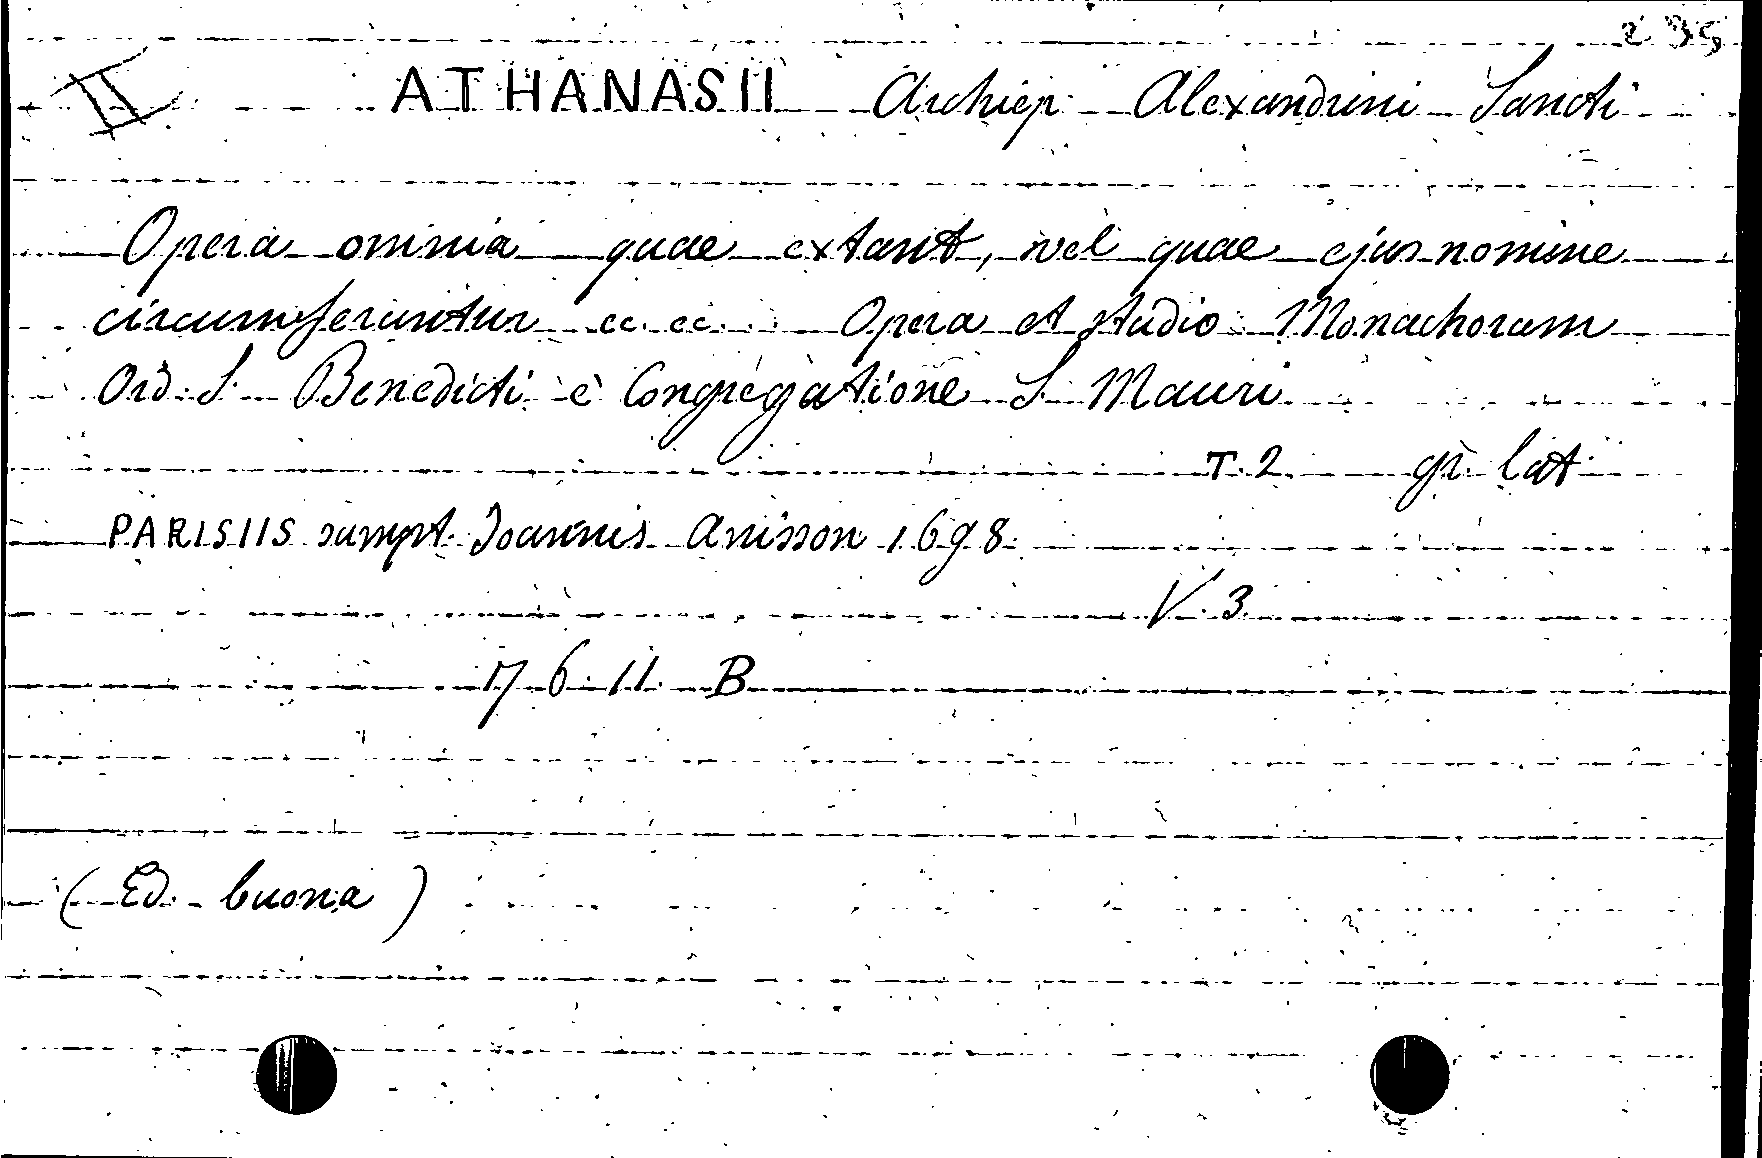 235
II ATHANASII Archiep. Alexandrini Sancti
Opera omnia quae extant, vel quae ejus nomine
circumferuntur ec. ec. Opera et studio Monachorum
Ord. S. Benedicti è Congregatione S. Mauri
T. 2 gr. lat.
PARISIIS sumpt. Joannis Anisson 1698.
V. 3.
17. 6. 11. B
(Ed. buona)